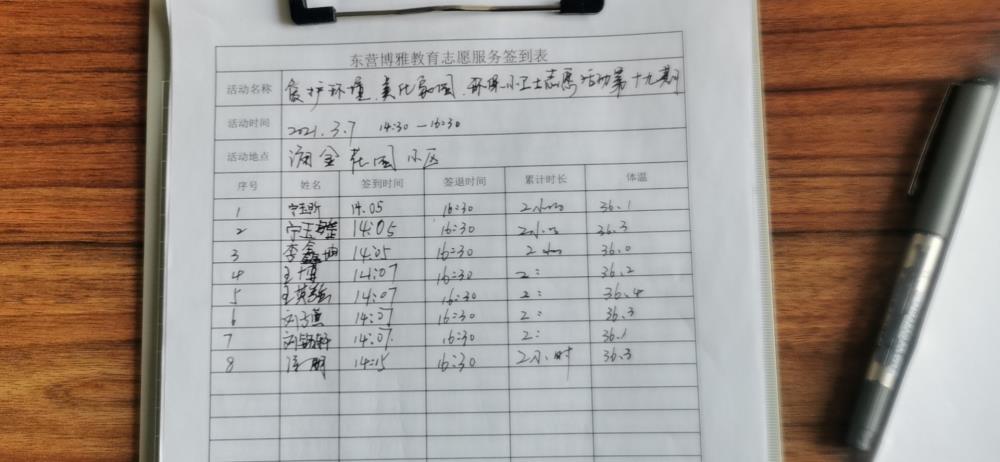 东营博雅教育志愿服务签到表
活动名称 爱护环境、美化家园、环保小卫士志愿活动第十九期
活动时间 2021.3.7 14:30—16:30
活动地点 润金花园小区
序号 姓名 签到时间 签退时间 累计时长 体温
1 14:05 16:30 2小时 36.1
2 宁玉 14:05 16:30 2小时 36.3
3 李鑫 14:05 16:30 2小时 36.0
4 王博 14:07 16:30 2: 36.2
5 王英 14:07 16:30 2: 36.4
6 刘 14:07 16:30 2: 36.3
7 刘 轩 14:07. 16:30 2: 36.1
8 14:15 16:30 2小时 36.3